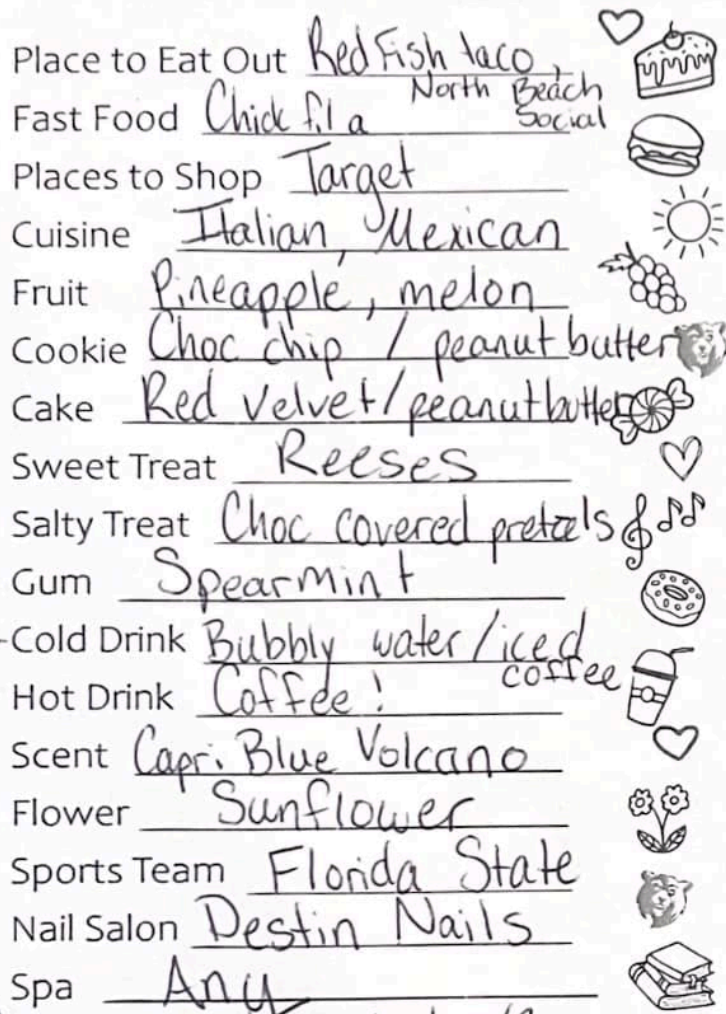 Place to Eat Out Red Fish taco,
North Beach
Social
Fast Food Chick fil a
Places to Shop Target
Cuisine Italian, Mexican
Fruit Pineapple, melon
Cookie Choc chip / peanut butter
Cake Red Velvet/peanutbutter
Sweet Treat Reeses
Salty Treat Choc covered pretzels
Gum Spearmint
Cold Drink Bubbly water/iced
coffee
Hot Drink Coffee!
Scent Capri Blue Volcano
Flower Sunflower
Sports Team Florida State
Nail Salon Destin Nails
Spa Any